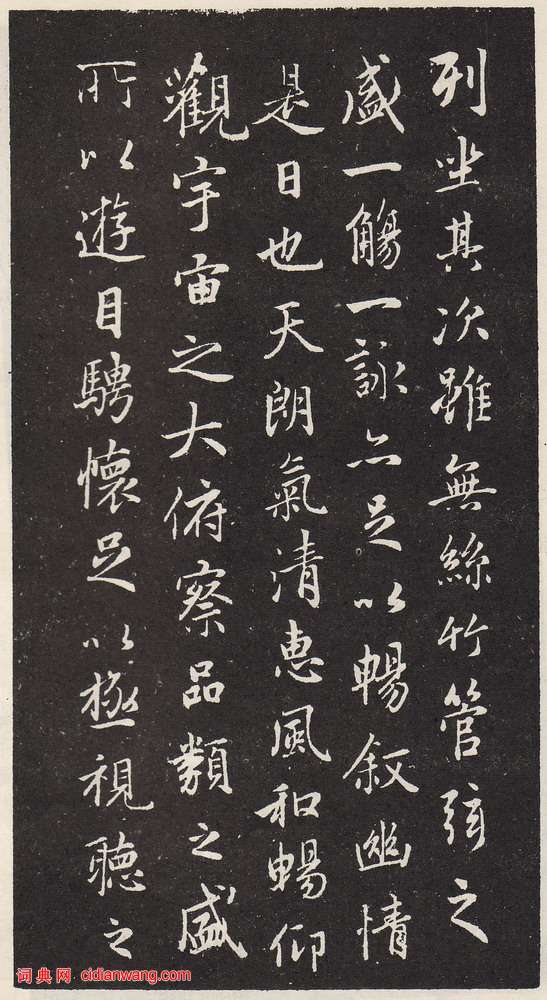 列坐其次雖無絲竹管弦之
盛一觴一詠亦足以暢叙幽情
是日也天朗氣清惠風和暢仰
觀宇宙之大俯察品類之盛
所以遊目騁懷足以極視聽之
词典网 cidianwang.com